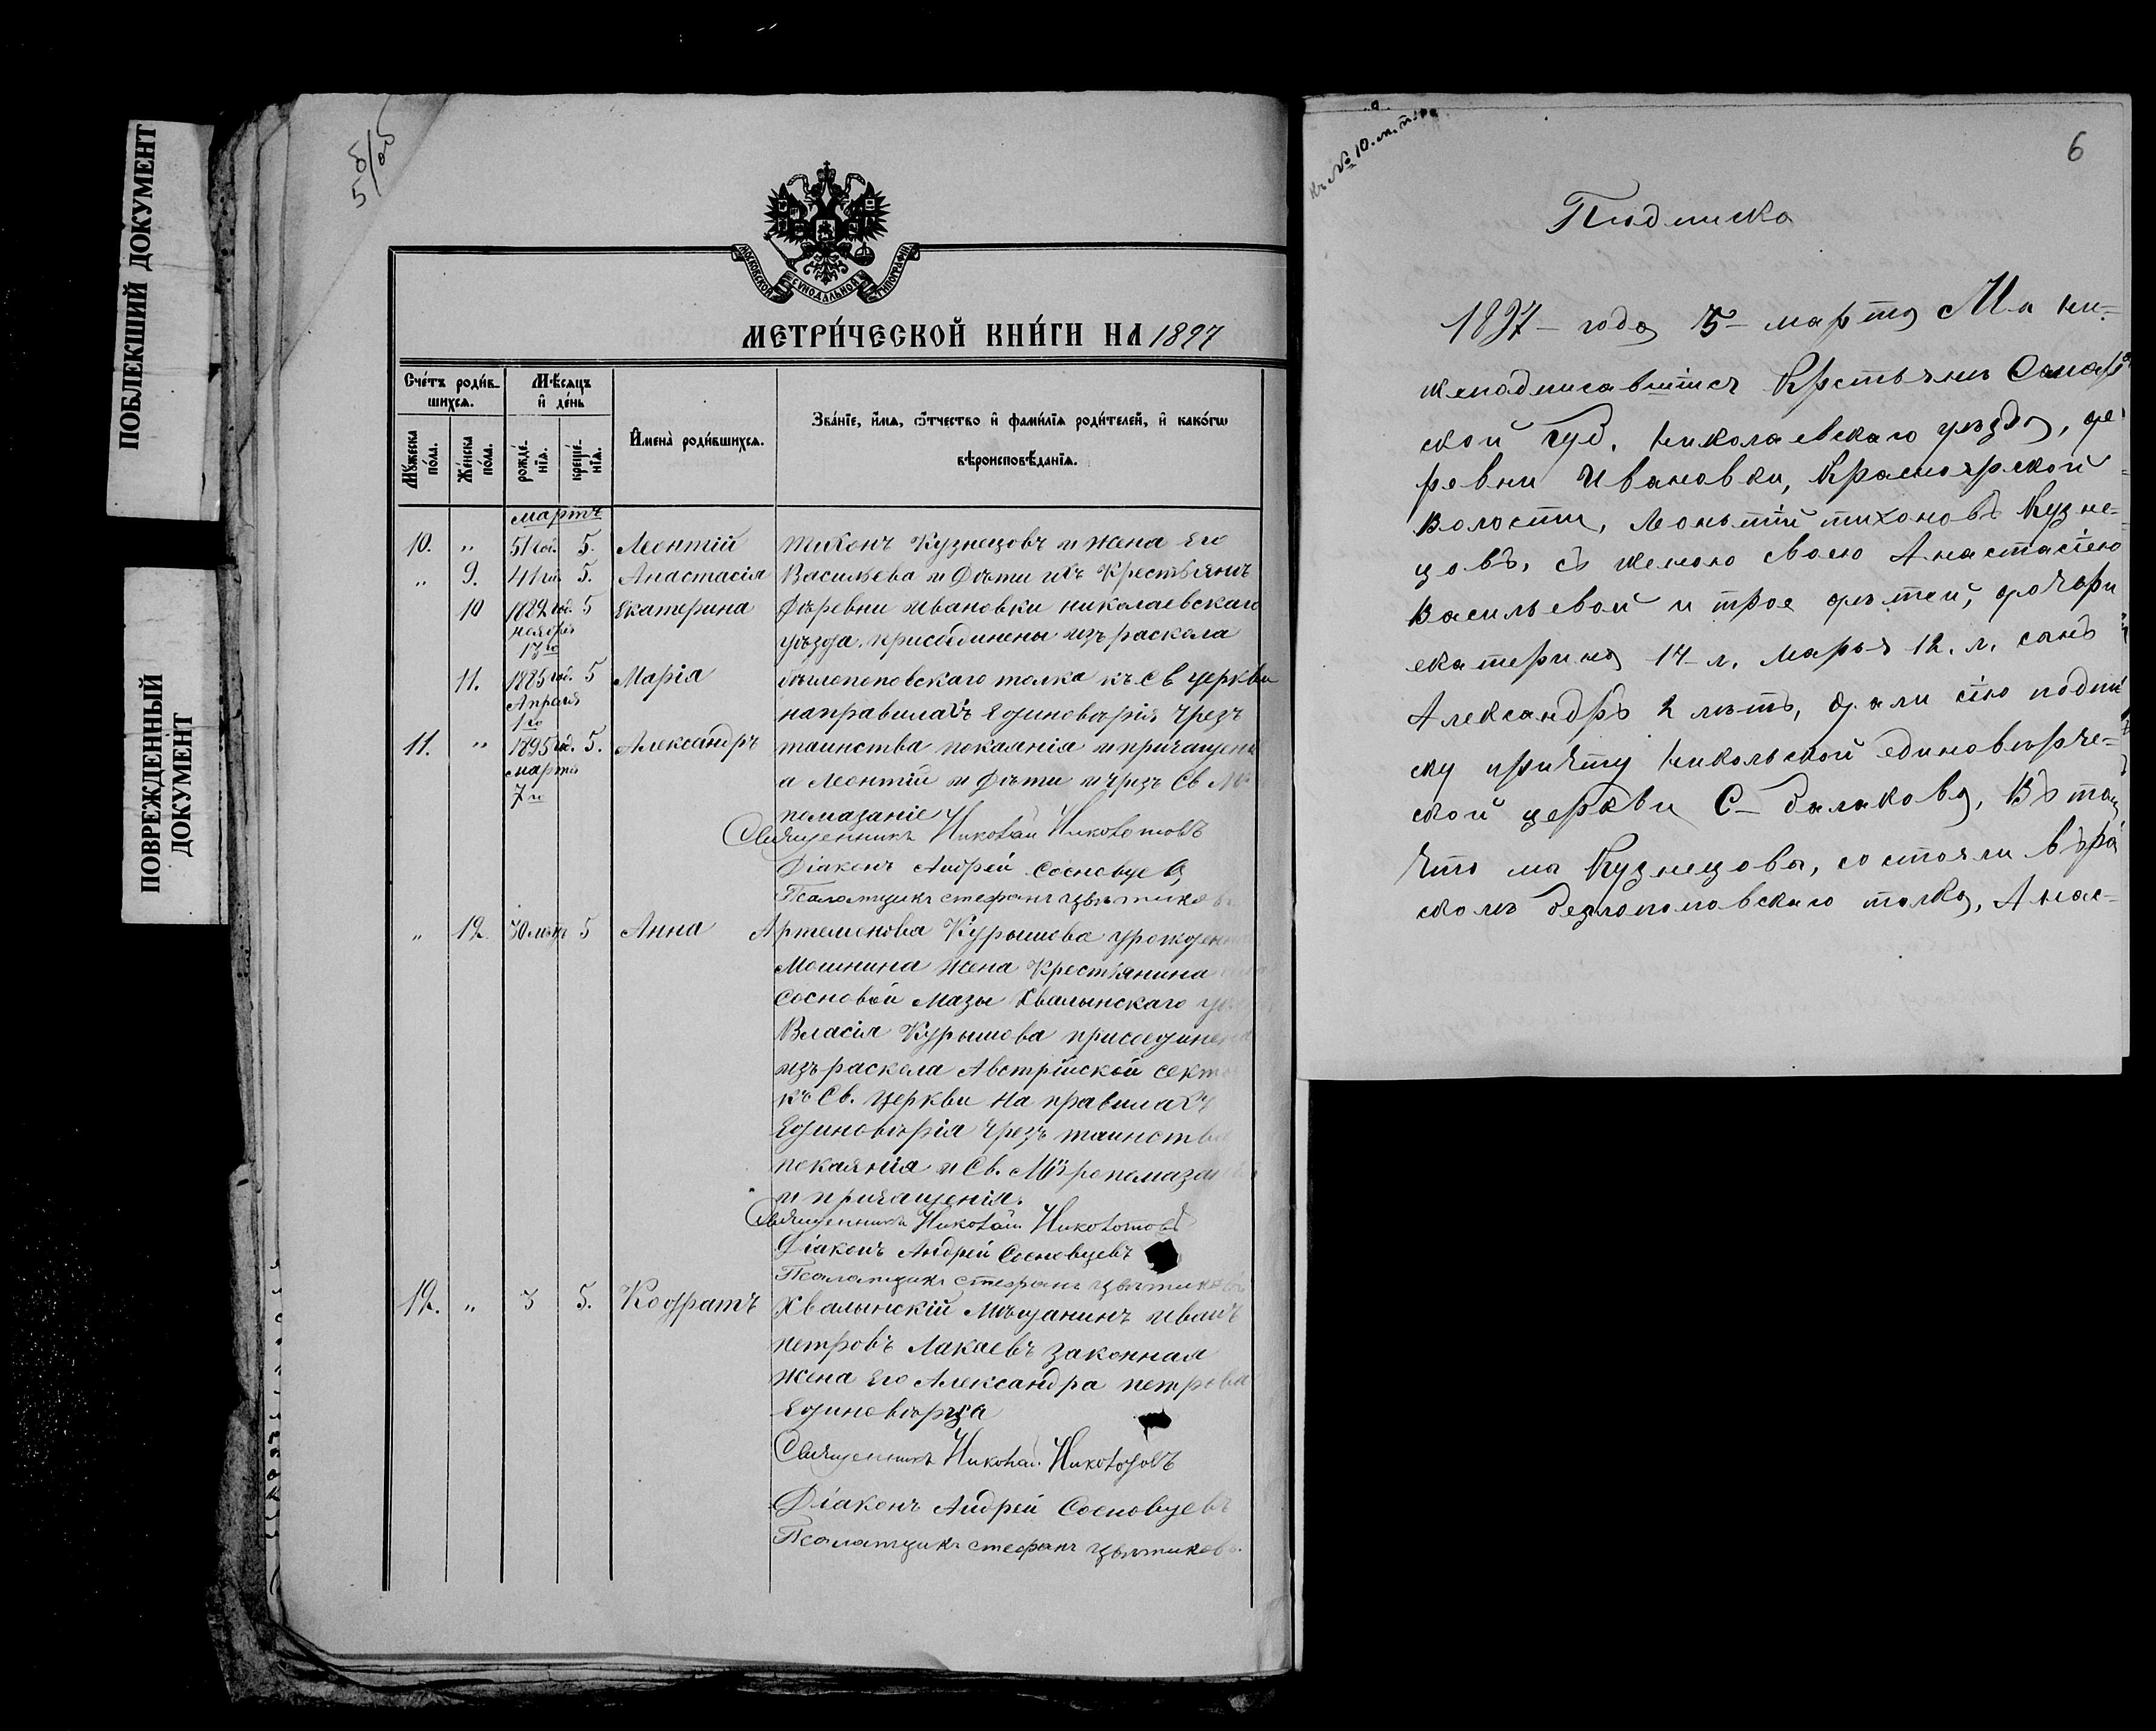 ПОБЛЕКШИЙ ДОКУМЕНТ
ПОВРЕЖДЕННЫЙ
ДОКУМЕНТ
5/об
МОСКОВСКОЙ СѴНОДАЛЬНОЙ ТИПОГРАФІИ
МЕТРИ́ЧЕСКОЙ КНИ́ГИ НА 1897
Сче́тъ роди́в-
шихсѧ.
Мѣ́сѧцъ
и҆ де́нь
Мꙋ́жеска
по́ла.
Же́нска
по́ла.
рожде́-
нїѧ.
креще́-
нїѧ.
И҆мена̀ роди́вшихсѧ.
Зва́нїе, и҆́мѧ, ѻ҆́тчество и҆ фами́лїѧ роди́телей, и҆ како́гѡ
вѣроисповѣ́данїѧ.
мартъ
10. " 51 год. 5. Леонтій Тихонъ Кузнецовъ и жена Его
" 9. 41 5. Анастасія Васильева и Дѣти ихъ Крестьянъ
10 1882 год. 5 Екатерина Деревни Ивановки Николаевскаго
ноября
17го
уѣзда, присоединены изъ раскола
11. 1885 год. 5 Марія бѣглопоповскаго толка къ Св церкви
Апрѣля
1го
на правилахъ Единовѣрія чрезъ
11. " 1895 год. 5. Александръ таинства покаянія и причащенія
марта
7го
а Леонтій и Дѣти и чрезъ Св
помазаніе
Священникъ Николай Никототовъ
Діаконъ Андрей Сосновцевъ
Псаломщикъ Стефанъ Цвѣтиковъ
" 12. 30 лѣтъ 5 Анна Артемонова Курышева урожденная
Мошнина жена Крестьянина
Сосновой Мазы Хвалынскаго
Власія Курышова присоединена
изъ раскола Австрійской секты
къ Св. Церкви на правилахъ
Единовѣрія чрезъ таинства
покаянія и Св. Мѵропомазанія
и причащенія.
Священникъ Николай Никототовъ
Діаконъ Андрей Сосновцевъ
Псаломщикъ Стефанъ Цвѣтиковъ
12. " 3 5. Кодратъ Хвалынскій Мѣщанинъ Иванъ
Петровъ Лакаевъ законная
жена Его Александра Петрова
Единовѣрца
Священникъ Николай
Діаконъ Андрей Сосновцевъ
Псаломщикъ Стефанъ Цвѣтиковъ.
Къ № 10.
6
Подписка
1897 – года 5 – марта Мы ни-
жеподписавшіися Крстьянъ Самар
ской Губ. Николаевскаго уѣзда, де
ревни Ивановки, Красноярской
Волости, Леонтій Тихоновъ Кузне-
цовъ, съ женою своею Анастасіею
Васильевой и трое дѣтей, дочери
екатерина 14 – л. Марья 12. л. сынъ
Александръ 2 лѣтъ, дали сію подпи
ску причту Никольской единовѣрче-
ской церкви С – балаково, Въ том
что мы Кузнецовы, состояли въ ра
сколѣ беглопоповскаго толка, Анас-